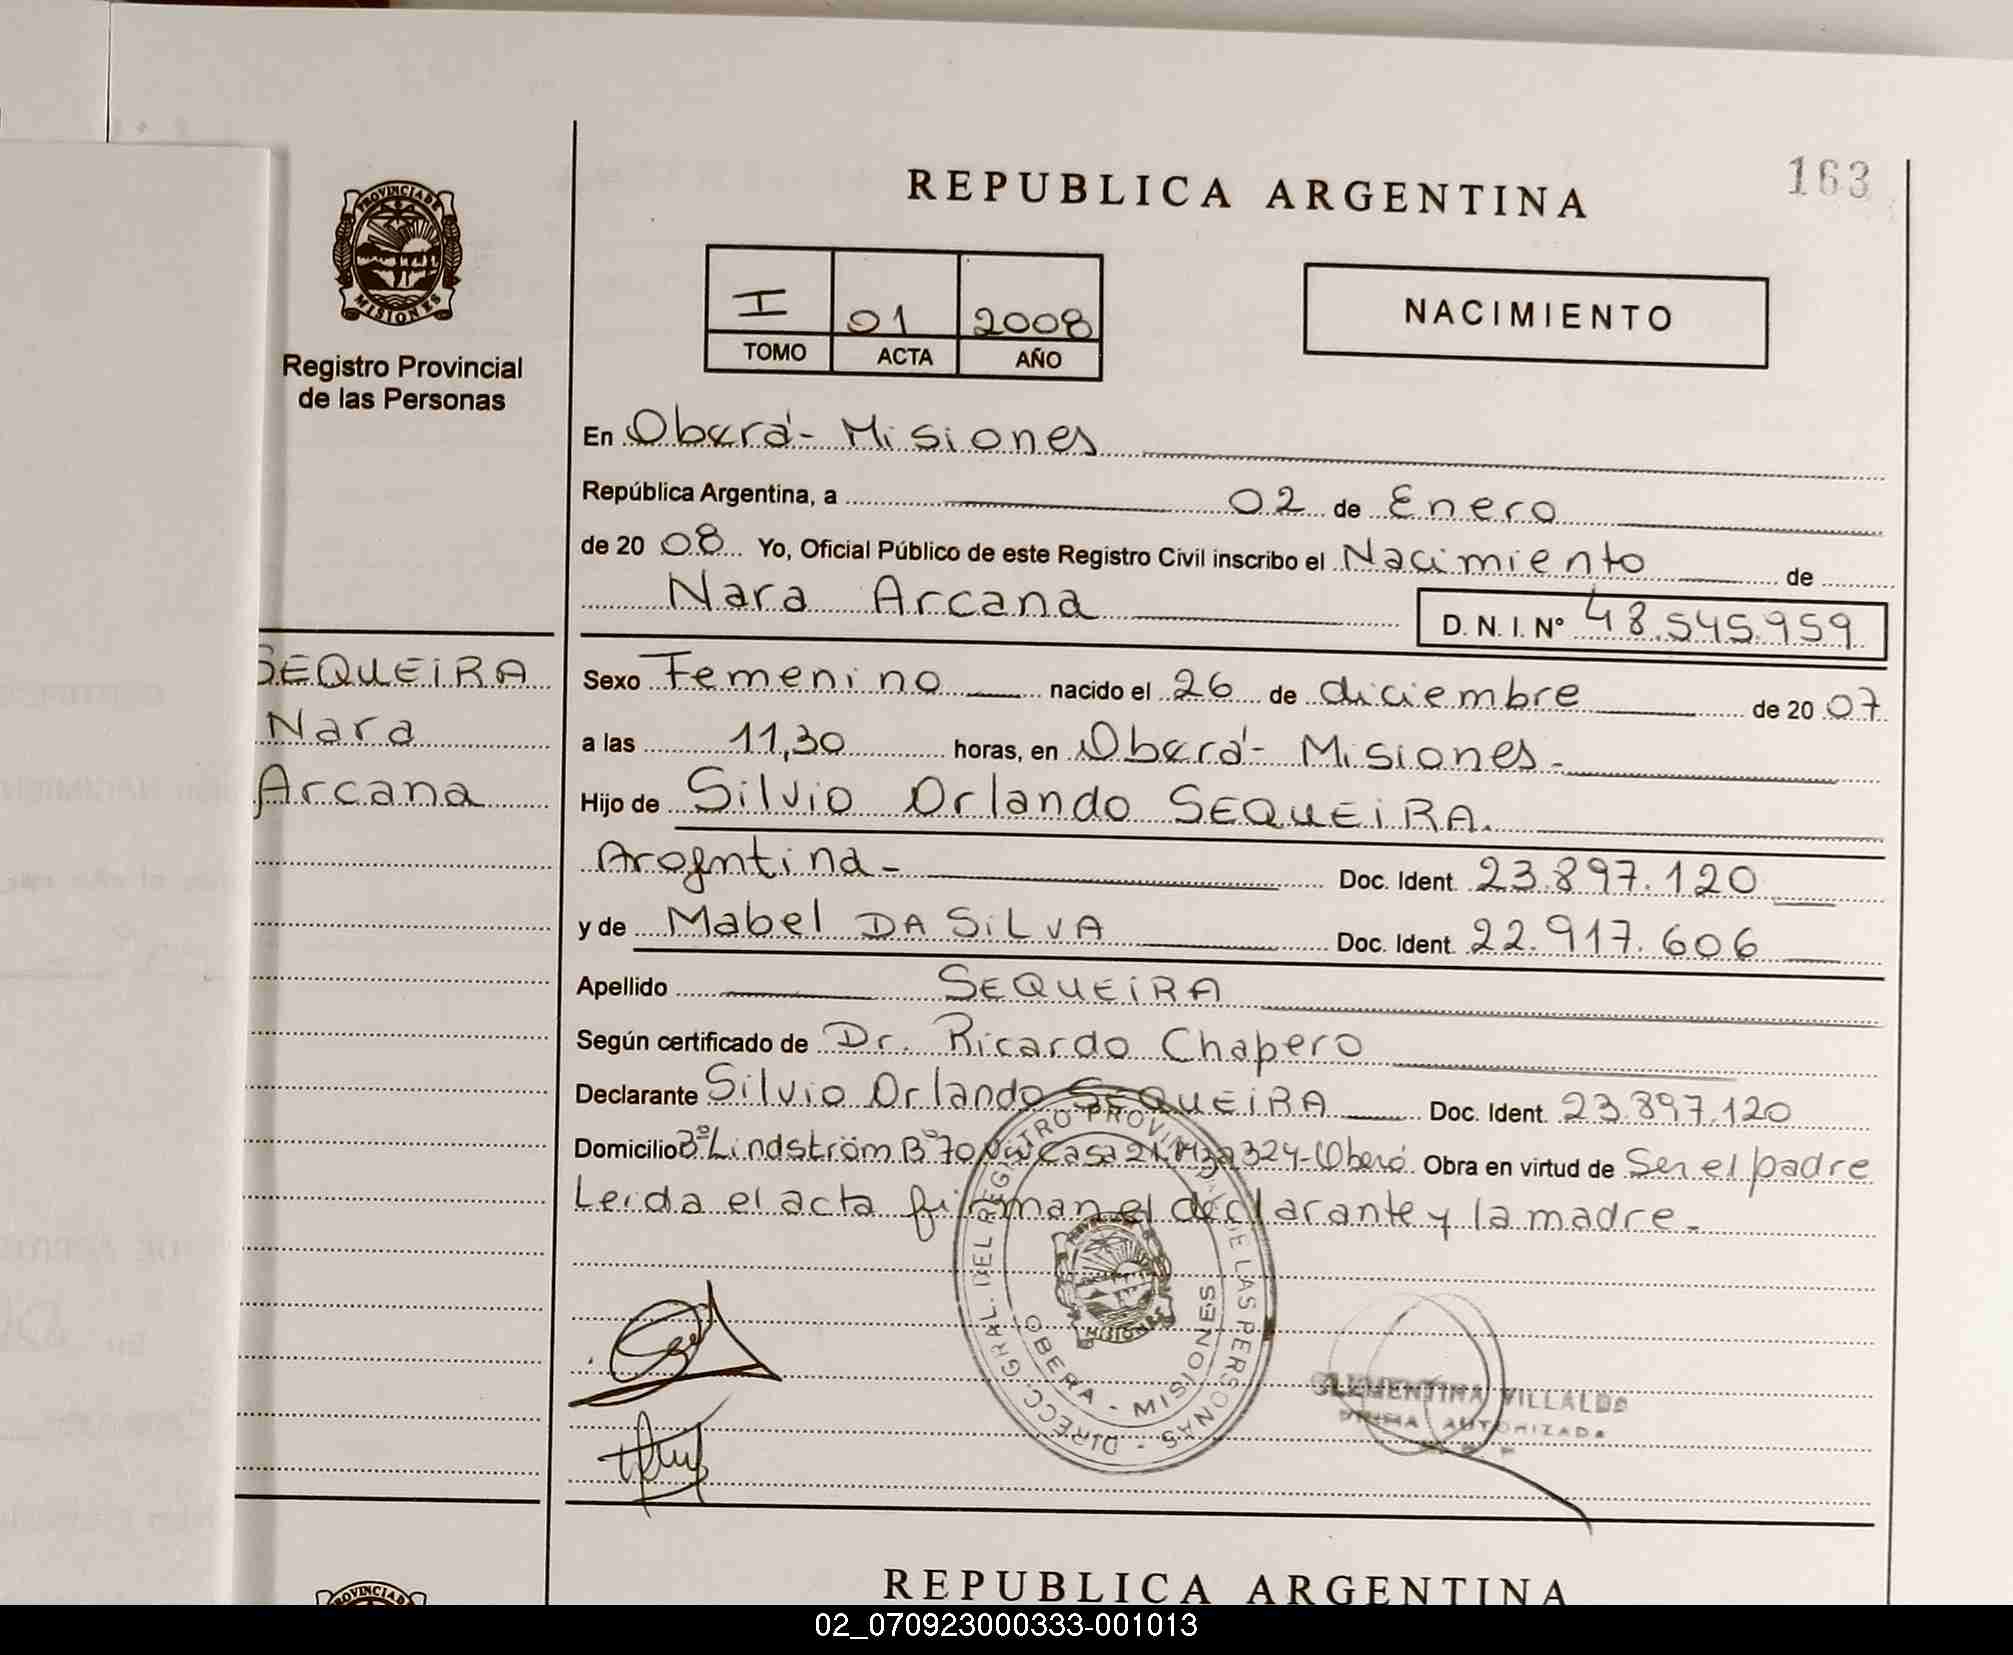 163
REPUBLICA ARGENTINA
PROVINCIA DE
MISIONES
Registro Provincial
de las Personas
I 01 2008
TOMO ACTA AÑO
NACIMIENTO
En Oberá - Misiones
República Argentina, a 02 de Enero
de 20 08 Yo, Oficial Público de este Registro Civil inscribo el Nacimiento de
Nara Arcana D. N. I. Nº 48.545.959
SEQUEIRA
Nara
Arcana
Sexo Femenino nacido el 26 de diciembre de 20 07
a las 11,30 horas, en Oberá - Misiones -
Hijo de Silvio Orlando SEQUEIRA.
Argentina - Doc. Ident. 23.897.120
y de Mabel DA SILVA Doc. Ident. 22.917.606
Apellido SEQUEIRA
Según certificado de Dr. Ricardo Chapero
Declarante Silvio Orlando SEQUEIRA Doc. Ident. 23.897.120
Domicilio Bº Lindström Bº 70 Casa 324 - Oberá Obra en virtud de Ser el padre
Leida el acta firman el declarante y la madre -
DIRECC. GRAL. DEL REGISTRO PROVINCIAL DE LAS PERSONAS -
OBERA - MISIONES
MISIONES
CLEMENTINA VILLALBA
FIRMA AUTORIZADA
REPUBLICA ARGENTINA
PROVINCIA D
02_070923000333-001013